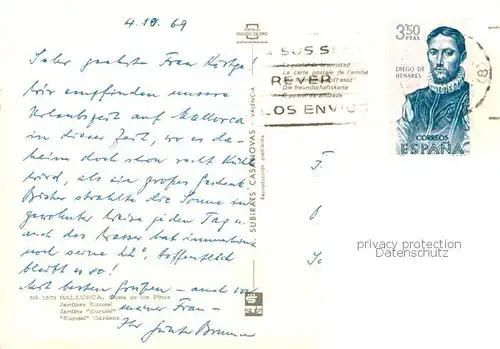 4.10.69
PORTALES
ESCUDO DE ORO
Sehr geehrte Frau
wir empfinden unsere
Urlaubszeit auf Mallorca
in dieser Zeit, wo es da-
heim doch schon recht kühl
wird, als ein großes Geschenk
Bisher strahlte die Sonne in
gewohnter Weise jeden Tag u.
auch das Wasser hat immerhin
noch seine 22°. Hoffentlich
bleibt es so!
Mit besten Grüßen – auch von
meiner Frau –
Ihr Günter
Nº 1579 MALLORCA, Costa de los Pinos
Jardines Eurotel
Jardins "Eurotel"
"Eurotel" Gardens
A. SUBIRATS CASANOVAS - VALENCIA
La postal de la amistad
La carte postale de l'amitié
Die freundschaftskarte
A SUS S
REVER
LOS ENVIOS
3,50
PTAS
DIEGO DE
HENARES
CORREOS
ESPAÑA
privacy protection
Datenschutz